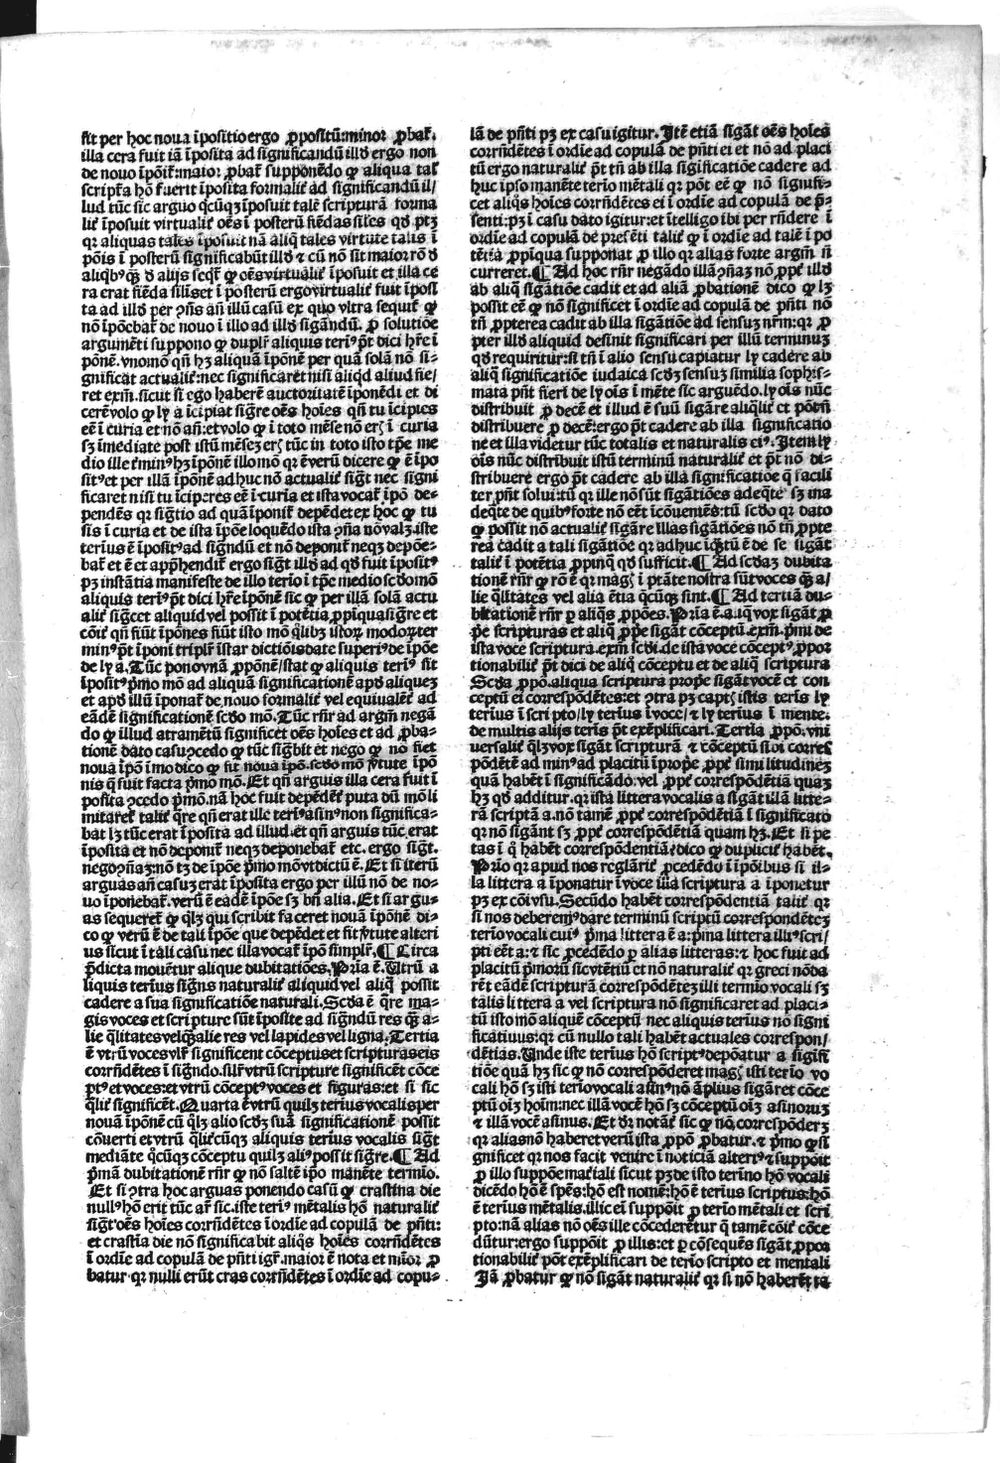 fit per hoc noua īpositio ergo ꝓpositū: minor ꝓbat᷑.
illa cera fuit iā īposita ad significandū illđ ergo non
de nouo īpōit᷑: maior ꝓbat᷑ supponēdo ꝙ aliqua tal
scriptᷓa hō fuerit īposita formalit᷑ ad significandū il/
lud tūc sic arguo qͥcūqꝫ īposuit talē scripturā forma
lit᷑ īposuit virtualit᷑ oēs ī posterū fiēdas siĺes qđ ptꝫ
qꝛ aliquas tales īposuit nā aliq̄ tales virtute talis ī
pōis ī posterū significabūt illđ ⁊ cū nō sit maior rō đ
aliqbꝰ qꝫ đ alijs seqt᷑ ꝙ oēs virtualit᷑ īposuit et illa ce
ra erat fiēda siĺis et ī posterū ergo virtualit᷑ fuit īposi
ta ad illđ per ꝯñs añ illū casū ex quo vltra sequit᷑ ꝙ
nō īpōebat᷑ de nouo ī illo ad illđ sigādū. ꝓ solutiōe
argumēti suppono ꝙ dupĺr aliquis terīꝰ p̄t dici hr̄e ī
pōnē. vno mō qñ hꝫ aliquā īponē per quā solā nō si-
gnificat actualit᷑: nec significaret nisi aliqđ aliud fie/
ret exm̄. sicut si ego haberē auctoritatē īponēdi et di
cerē volo ꝙ ly a īcipiat sigr̄e oēs hoīes qñ tu īcipies
eē ī curia et nō añ: et volo ꝙ ī toto mēse nō erꝭ ī curia
sꝫ īmediate post istū mēseꝫ erꝭ tūc in toto isto tp̄e me
dio ille t᷑minꝰ hꝫ īponē illo mō qꝛ ē verū dicere ꝙ ē īpo
sitꝰ et per illā īponē adhuc nō actualit᷑ sigt᷑ nec signi
ficaret nisi tu īciperes eē ī curia et ista vocat᷑ īpō de-
pendēs qꝛ sigtio ad quā īponit᷑ depēdet ex hoc ꝙ tu
sis ī curia et de ista īpōe loquēdo ista ꝯña nō valꝫ. iste
terīus ē īpositꝰ ad sigñdū et nō deponit᷑ neqꝫ depōe-
bat᷑ ē et apprēhendit᷑ ergo sigt᷑ illđ ad qđ fuit īpositꝰ
pꝫ instātia manifeste de illo terīo ī tp̄e medio scđo mō
aliquis terīꝰ p̄t dici hr̄e īponē sic ꝙ per illā solā actu
alit᷑ sigcet aliquid vel possit ī potētia ꝓpīqua sigr̄e et
cōit᷑ qñ fiūt īpōnes fiūt isto mō qͥlibꝫ istoꝝ modoꝝ ter
minꝰ p̄t īponi tripĺr īstar dictiōis date superiꝰ de īpōe
de ly a. Tūc pono vnā ꝓponē/stat ꝙ aliquis terīꝰ sit
īpositꝰ p̄mo mō ad aliquā significationē apđ aliqueꝫ
et apđ illū īponat᷑ de nouo formalit᷑ vel equiualēt᷑ ad
eādē significationē scđo mō. Tūc rn̄r ad argm̄ negā
do ꝙ illud atramētū significet oēs hoīes et ad ꝓba-
tionē dato casu ꝯcedo ꝙ tūc sigbit et nego ꝙ nō fiet
noua īpō īmo dico ꝙ fit noua īpō scđo mō ꝟtute īpō
nis q̄ fuit facta p̄mo mō. Et qñ arguis illa cera fuit ī
posita ꝯcedo p̄mo mō. nā hoc fuit depēdēt᷑ puta dū mōli
mitaret᷑ talit᷑ qͣre qñ erat ille terīꝰ asinꝰ non significa-
bat lꝫ tūc erat īposita ad illud. et qñ arguis tūc erat
īposita et nō deponit᷑ neqꝫ deponebat᷑ etc. ergo sigt᷑.
nego ꝯñaꝫ: nō tꝫ de īpōe p̄mo mō vt dictū ē. Et si iterū
arguas añ casuꝫ erat īposita ergo per illū nō de no-
uo īponebat᷑. verū ē eadē īpōe sꝫ bñ alia. Et si argu-
as sequeret᷑ ꝙ qͥlꝫ qui scribit faceret nouā īponē di-
co ꝙ verū ē de tali īpōe que depēdet et fit ꝟtute alteri
us sicut ī tali casu nec illa vocat᷑ īpō simplr̄. ¶ Circa
p̄dicta mouētur alique dubitatiōes. Pria ē. Vtrū a
liquis terīus sigñs naturalit᷑ aliquid vel aliqͣ possit
cadere a sua significatiōe naturali. Scđa ē qͣre ma-
gis voces et scripture sūt īposite ad sigñdū res qꝫ a-
lie q̄litates vel q̄ alie res vel lapides vel ligna. Tertia
ē vtrū voces vlr̄ significent cōceptus et scripturas eis
corrñdētes ī sigñdo. silr̄ vtrū scripture significēt cōce
ptꝰ et voces: et vtrū cōceptꝰ voces et figuras: et si sic
qͣlit᷑ significēt. Quarta ē vtrū quilꝫ terīus vocalis per
nouā īponē cū qͥlꝫ alio scđꝫ suā significationē possit
cōuerti et vtrū qͣlit᷑cūqꝫ aliquis terīus vocalis sigt᷑
mediāte qͥcūqꝫ cōceptu quilꝫ aliꝰ possit sigr̄e. ¶ Ad
p̄mā dubitationē rn̄r ꝙ nō saltē īpō manēte termio.
Et si ꝯtra hoc arguas ponendo casū ꝙ crastina die
nullꝰ hō erit tūc ar̄ sic. iste terīꝰ mētalis hō naturalit᷑
sigt᷑ oēs hoīes corrñdētes ī ordīe ad copulā de pn̄ti:
et crastia die nō significabit aliqͦs hoīes corrñdētes
ī ordīe ad copulā de pn̄ti igr̄. maior ē nota et mīor ꝓ
batur qꝛ nulli erūt cras corrñdētes ī ordīe ad copu-
lā de pn̄ti pꝫ ex casu igitur. Itē etiā sigāt oēs hoīes
corrñdētes ī ordīe ad copulā de pn̄ti ei et nō ad placi
tū ergo naturalit᷑ p̄t tñ ab illa sigificatiōe cadere ad
huc ipso manēte terīo mētali qꝛ pōt eē ꝙ nō signifi-
cet aliqͦs hoīes corrñdētes ei ī ordīe ad copulā de p̄-
senti: pꝫ ī casu dato igitur: et ītelligo ibi per rñdere ī
ordīe ad copulā de presēti talit᷑ ꝙ ī ordīe ad talē ī po
tētia ꝓpīqua supponat ꝓ illo qꝛ alias forte argm̄ si
curreret. ¶ Ad hoc rn̄r negādo illā ꝯñaꝫ nō ꝓpt᷑ illđ
ab aliqͣ sigatiōe cadit et ad aliā ꝓbationē dico ꝙ lꝫ
possit eē ꝙ nō significet ī ordīe ad copulā de pn̄ti nō
tñ ꝓpterea cadit ab illa sigātiōe ad sensuꝫ nr̄m: qꝛ ꝓ
pter illđ aliquid desinit significari per illū terminuꝫ
qđ requiritur: si tñ ī alio sensu capiatur ly cadere ab
aliqͣ significatiōe iudaica scđꝫ sensuꝫ similia sophis-
mata pn̄t fieri de ly oīs ī mēte sic arguēdo. ly oīs nūc
distribuit ꝓ decē et illud ē suū sigāre aliqͣlit᷑ et pōtñ
distribuere ꝓ decē: ergo p̄t cadere ab illa significatio
ne et illa videtur tūc totalis et naturalis eiꝰ. Itēm ly
oīs nūc distribuit istū terminū naturalit᷑ et p̄t nō di-
stribuere ergo p̄t cadere ab illa significatiōe q̄ facili
ter pn̄t solui: tū qꝛ ille nō sūt sigātiōes adeq̄te sꝫ ina
deq̄te de quibꝰ forte nō eēt īcōueniēs: tū scđo qꝛ dato
ꝙ possit nō actualit᷑ sigāre illas sigātiōes nō tñ ꝓpte
rea cadit a tali sigātiōe qꝛ adhuc īqͣtū ē de se sigāt
talit᷑ ī potētia ꝓpinq̄ qđ sufficit. ¶ Ad scđaꝫ dubita
tionē rn̄r ꝙ rō ē qꝛ magꝭ ī ptāte nostra sūt voces qꝫ a/
lie q̄litates vel alia ētia qͥcūqꝫ sint. ¶ Ad tertiā du-
bitationē rn̄r ꝑ aliqͣs ꝓpōes. Pria ē. aliqͣ vox sigāt ꝓ
p̄e scripturas et aliqͣ ꝓp̄e sigāt cōceptū. exm̄. p̄mi de
ista voce scriptura. exm̄ scđi. de ista voce cōceptꝰ. ꝓpor
tionabilit᷑ p̄t dici de aliqͦ cōceptu et de aliqͣ scriptura
Scđa ꝓpō. aliqua scriptura prope sigāt vocē et con
ceptū ei correspōdētes: et ꝯtra pꝫ captꝭ istis terīs ly
terīus ī scripto/ly terīus ī voce/⁊ ly terīus ī mente.
de multis alijs terīs p̄t exēplificari. Tertia ꝓpō. vni
uersalit᷑ qͥlꝫ vox sigāt scripturā ⁊ cōceptū sibi corres
pōdētē ad minꝰ ad placitū īprope ꝓpt᷑ similitudineꝫ
quā habēt ī significādo. vel ꝓpt᷑ correspōdētiā quaꝫ
hꝫ qđ additur. qꝛ ista littera vocalis a sigāt illā litte-
rā scriptā a. nō tamē ꝓpt᷑ correspōdētiā ī significato
qꝛ nō sigānt sꝫ ꝓpt᷑ correspōdētiā quam hꝫ. Et si pe
tas ī q̄ habēt correspōdētiā: dico ꝙ duplicit᷑ habēt.
Prīo qꝛ apud nos reglarit᷑ ꝓcedēdo ī īpōibus si il-
la littera a īponatur ī voce illa scriptura a īponetur
pꝫ ex cōi vsu. Secūdo habēt correspōdentiā talit᷑ qꝛ
si nos deberemꝰ dare terminū scriptū correspondēteꝫ
terīo vocali cuiꝰ p̄ma littera ē a: p̄ma littera illiꝰ scri/
pti eēt a: ⁊ sic ꝓcedēdo ꝑ alias litteras: ⁊ hoc fuit ad
placitū p̄morū sic vtētiū et nō naturalit᷑ qꝛ greci nō da
rēt eādē scripturā correspōdēteꝫ illi termio vocali sꝫ
talis littera a vel scriptura nō significaret ad placi-
tū isto mō aliquē cōceptū nec aliquis terīus nō signi
ficatiuus: qꝛ cū nullo tali habēt actuales correspon/
dētias. Unde iste terīus hō scriptꝰ depōatur a sigifi
tiōe quā hꝫ sic ꝙ nō correspōderet magꝭ isti terīo vo
cali hō sꝫ isti terīo vocali asinꝰ nō āplius sigāret cōce
ptū oīꝫ hoīm: nec illā vocē hō sꝫ cōceptū oīꝫ asinoruꝫ
⁊ illā vocē asinus. Et dr̄ notāt᷑ sic ꝙ nō correspōderꝫ
qꝛ alias nō haberet verū ista ꝓpō ꝓbatur. ⁊ p̄mo ꝙ si
gnificet qꝛ nos facit venire ī noticiā alteriꝰ ⁊ suppōit
ꝓ illo suppōe mat᷑iali sicut pꝫ de isto terīno hō vocali
dicēdo hō ē spēs: hō est nomē: hō ē terīus scriptus: hō
ē terīus mētalis. illic eī suppōit ꝓ terīo mētali et scri
pto: nā alias nō oēs ille cōcederētur q̄ tamē cōit᷑ cōce
dūtur: ergo suppōit ꝓ illis: et ꝑ cōsequēs sigāt. ꝓpor
tionabilit᷑ pōt exēplificari de terīo scripto et mentali
Iā ꝓbatur ꝙ nō sigāt naturalit᷑ qꝛ si nō haberēt ta